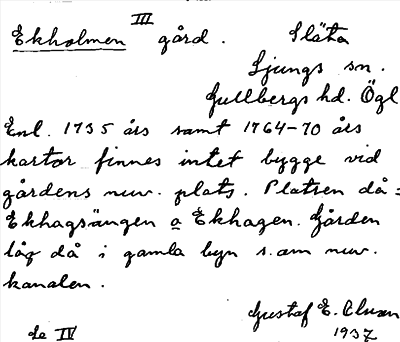 III
Ekholmen gård. Släta
Ljungs sn.
Gullbergs hd. Ögl
Enl. 1735 års samt 1764-70 års
kartor finnes intet bygge vid
gårdens nuv. plats. Platsen då =
Ekhagsängen o Ekhagen. Gården
låg då i gamla byn s. om nuv.
kanalen.
Gustaf E.
Se IV 1937